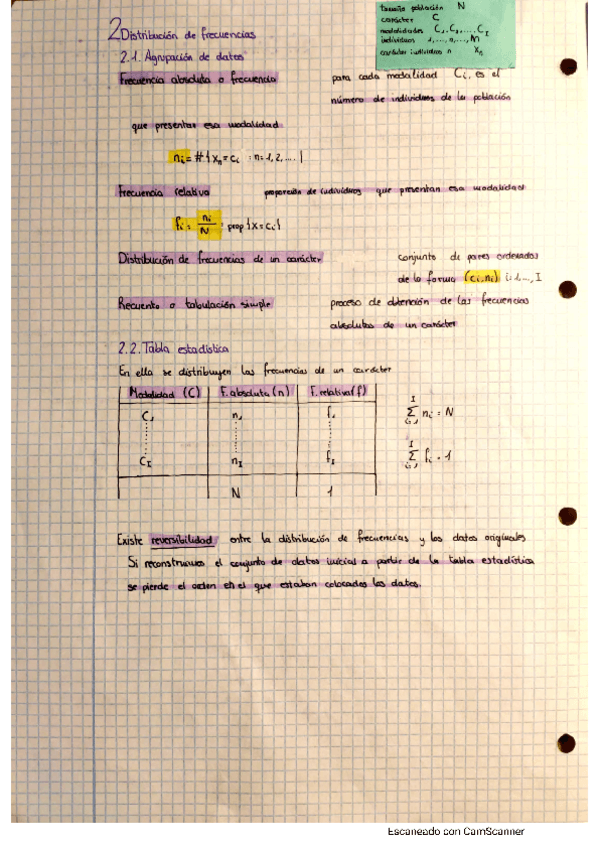 tamaño población N
carácter C
modalidades C1, C2, ..., CI
individuos 1, ..., n, ..., N
carácter individuo n xn
2 Distribución de frecuencias
2.1. Agrupación de datos
Frecuencia absoluta o frecuencia para cada modalidad Ci, es el
número de individuos de la población
que presentan esa modalidad
ni = # { xn = ci : n = 1, 2, .... }
Frecuencia relativa proporción de individuos que presentan esa modalidad
fi = ni/N prop {x = ci}
Distribución de frecuencias de un carácter conjunto de pares ordenados
de la forma (ci, ni) i = 1 ..., I
Recuento o tabulación simple proceso de obtención de las frecuencias
absolutas de un carácter
2.2. Tabla estadística
En ella se distribuyen las frecuencias de un carácter
Modalidad (C) F. absoluta (n) F. relativa (f)
C1 n1 f1 I Σ i=1 ni = N
CI nI fI I Σ i=1 fi = 1
N 1
Existe reversibilidad entre la distribución de frecuencias y los datos originales
Si reconstruimos el conjunto de datos inicial a partir de la tabla estadística
se pierde el orden en el que estaban colocados los datos.
Escaneado con CamScanner